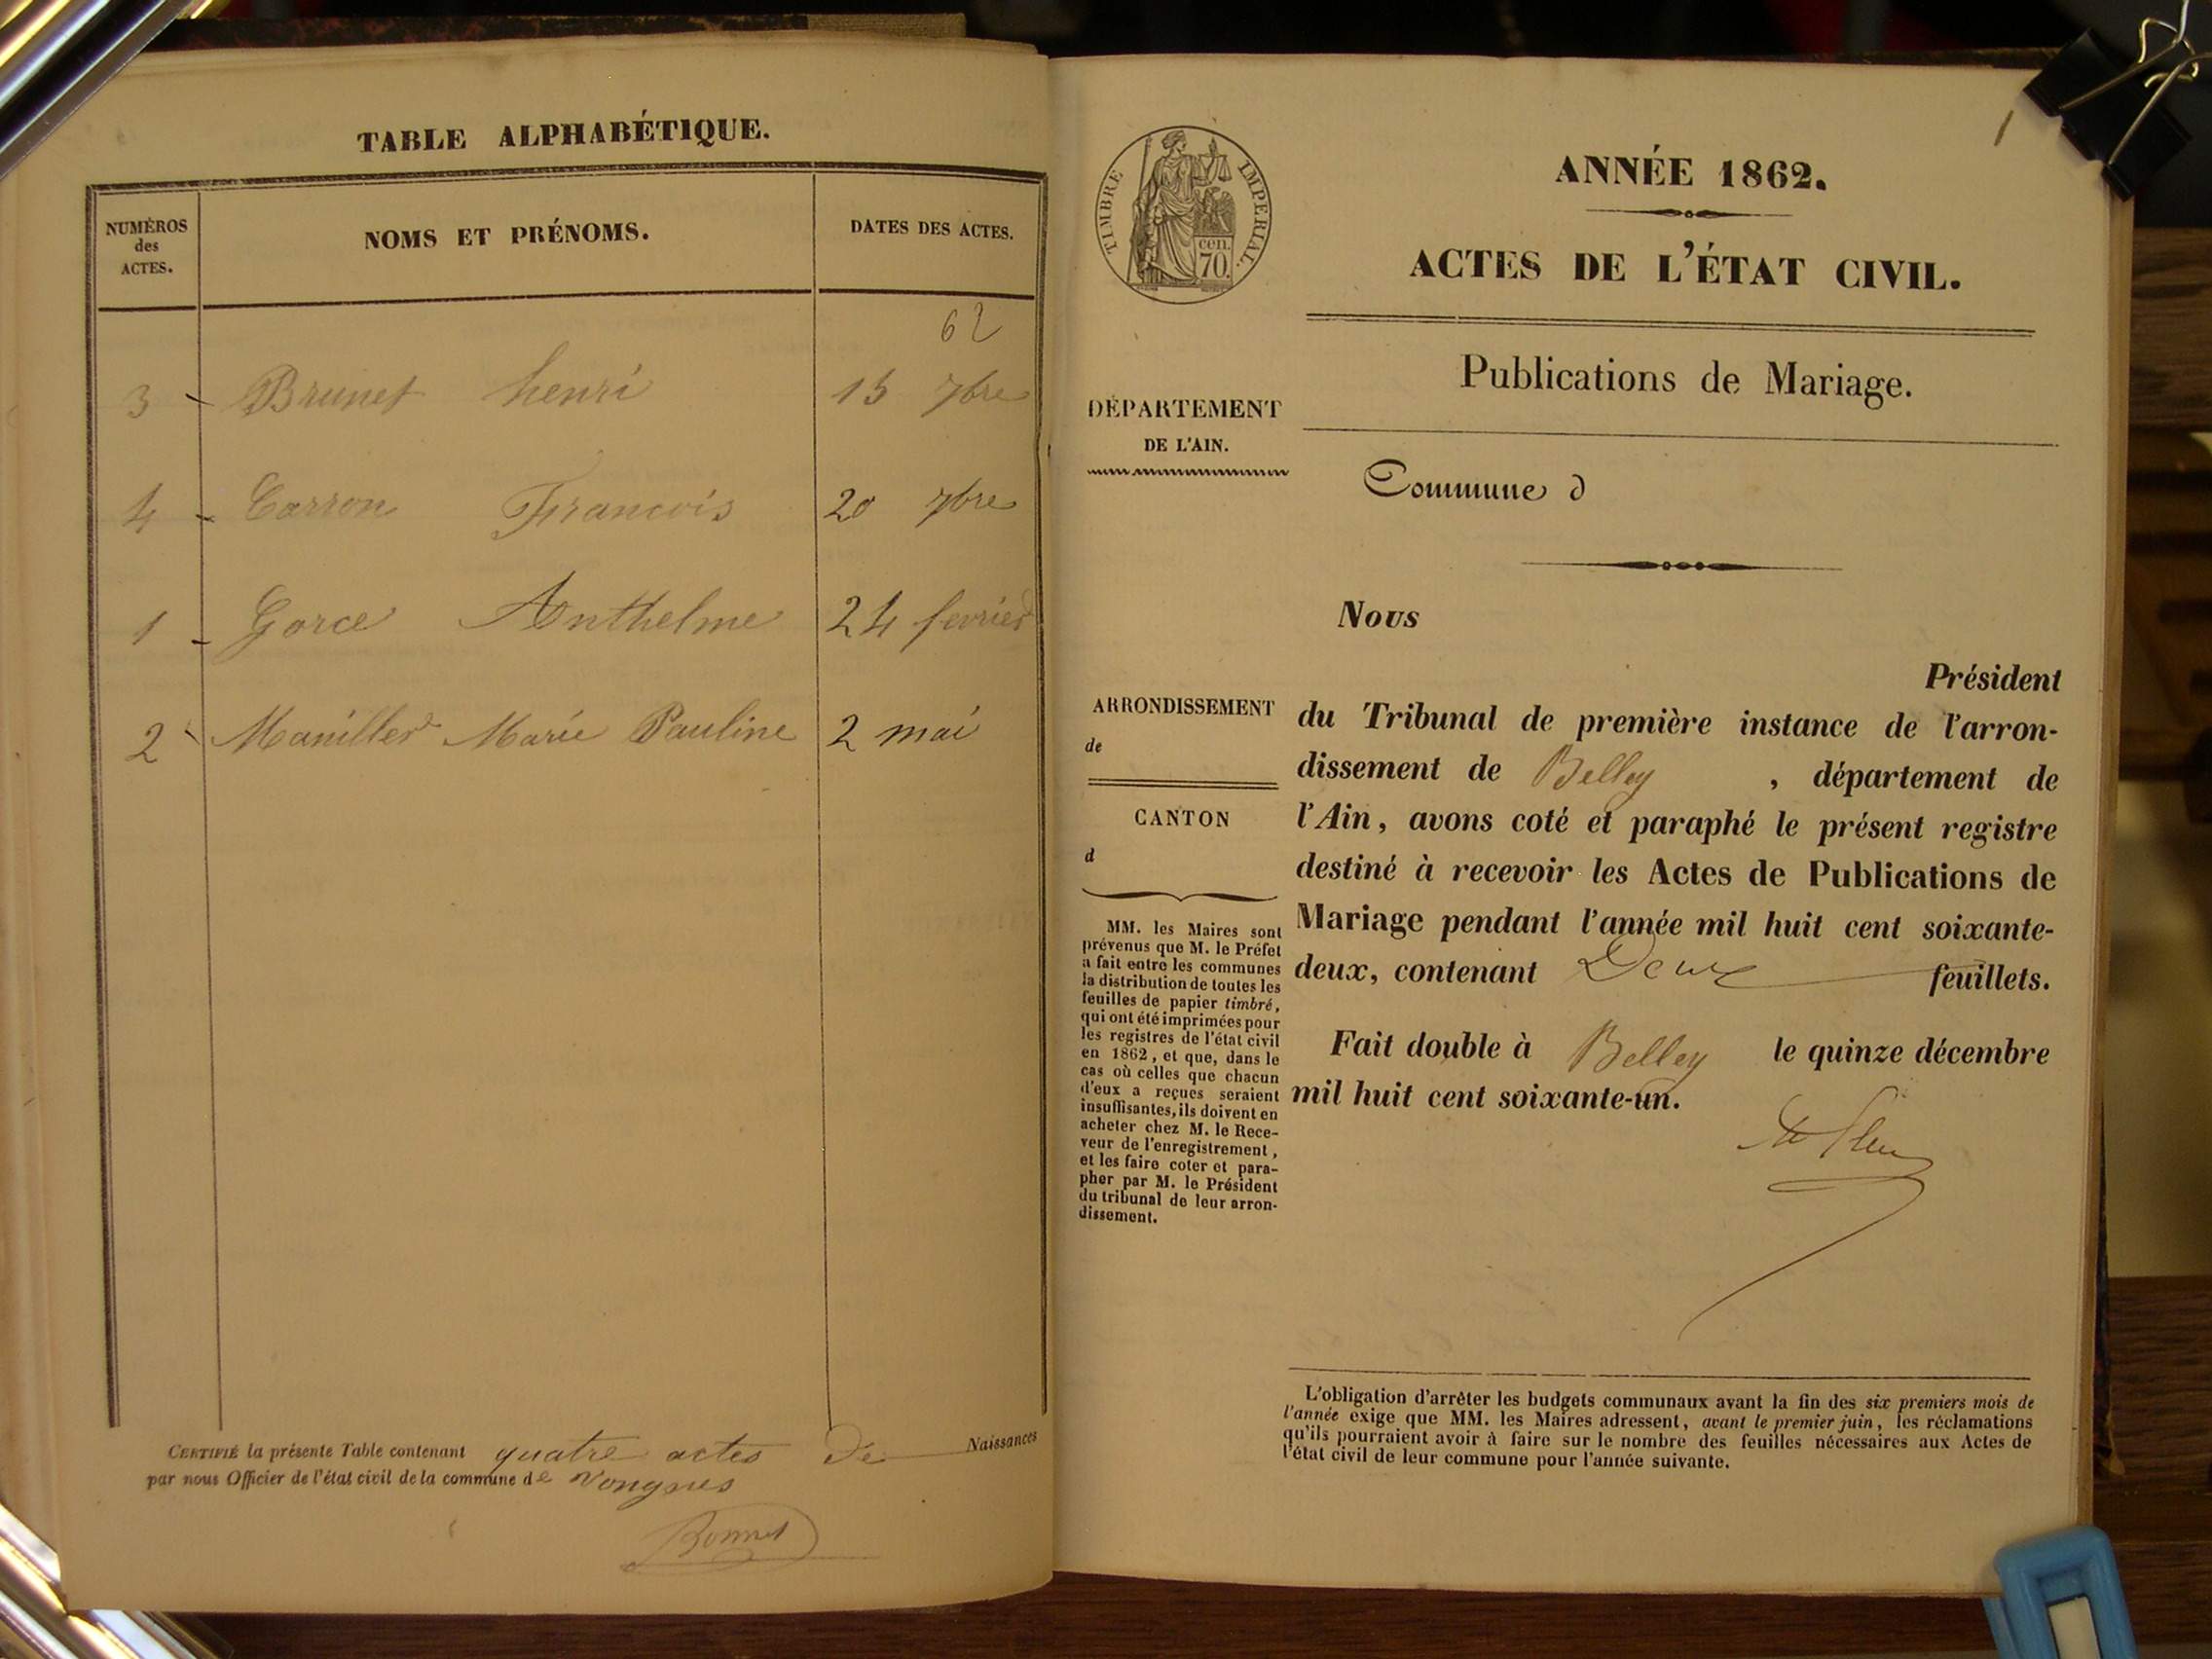 TABLE ALPHABÉTIQUE.
NUMÉROS
des
ACTES.
NOMS ET PRÉNOMS.
DATES DES ACTES.
62
3 Brunet henri 15 7bre
4 Carron Francois 20 7bre
1 Gorce Anthelme 24 fevrier
2 Manillier Marie Pauline 2 mai
CERTIFIÉ la présente Table contenant quatre actes de Naissances
par nous Officier de l'état civil de la commune de Vongnes
Bonnet
1
TIMBRE IMPERIAL.
cen.
70.
ANNÉE 1862.
ACTES DE L'ÉTAT CIVIL.
Publications de Mariage.
DÉPARTEMENT
DE L'AIN.
Commune d
Nous
Président
du Tribunal de première instance de l'arron-
dissement de Belley , département de
l'Ain, avons coté et paraphé le présent registre
destiné à recevoir les Actes de Publications de
Mariage pendant l'année mil huit cent soixante-
deux, contenant Deux feuillets.
Fait double à Belley le quinze décembre
mil huit cent soixante-un.
ARRONDISSEMENT
de
CANTON
d
MM. les Maires sont
prévenus que M. le Préfet
a fait entre les communes
la distribution de toutes les
feuilles de papier timbré,
qui ont été imprimées pour
les registres de l'état civil
en 1862, et que, dans le
cas où celles que chacun
d'eux a reçues seraient
insuffisantes, ils doivent en
acheter chez M. le Rece-
veur de l'enregistrement,
et les faire coter et para-
pher par M. le Président
du tribunal de leur arron-
dissement.
L'obligation d'arrêter les budgets communaux avant la fin des six premiers mois de
l'année exige que MM. les Maires adressent, avant le premier juin, les réclamations
qu'ils pourraient avoir à faire sur le nombre des feuilles nécessaires aux Actes de
l'état civil de leur commune pour l'année suivante.